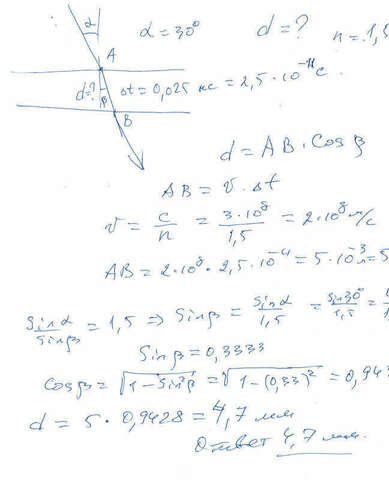 α α = 30° d = ? n = 1,5
A
d=? β Δt = 0,025 нс = 2,5·10⁻¹¹ с
B
d = AB · Cos β
AB = v · Δt
v = c/n = 3·10⁸/1,5 = 2·10⁸ м/с
AB = 2·10⁸ · 2,5·10⁻¹¹ = 5·10⁻³ м = 5
Sin α/Sin β = 1,5 ⇒ Sin β = Sin α/1,5 = Sin 30°/1,5 =
Sin β = 0,3333
Cos β = √(1 − Sin²β) = √(1 − (0,33)²) = 0,943
d = 5 · 0,9428 = 4,7 мм
Ответ 4,7 мм.